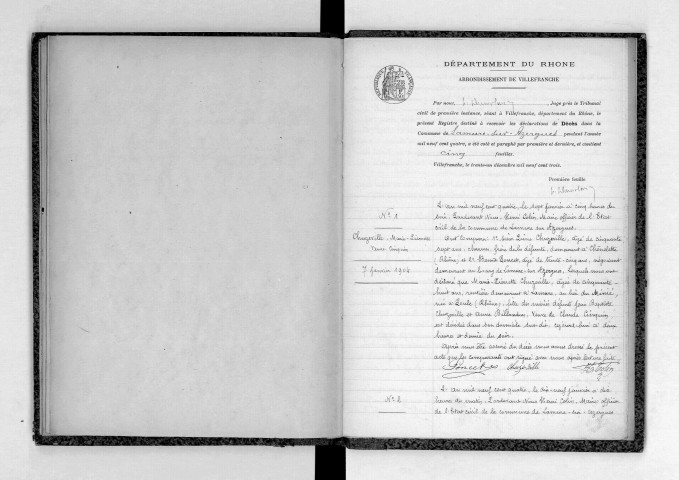 DÉPARTEMENT DU RHONE
ARRONDISSEMENT DE VILLEFRANCHE
Par nous, Juge près le Tribunal
civil de première instance, séant à Villefranche, département du Rhône, le
présent Registre destiné à recevoir les déclarations de Décès dans la
Commune de Lamure-sur-Azergues pendant l'année
mil neuf cent quatre, a été coté et paraphé par première et dernière, et contient
cinq feuilles
Villefranche, le trente-un décembre mil neuf cent trois.
Première feuille
N° 1
Marie-Pierrette
Veuve
7 janvier 1904
L'an mil neuf cent quatre, le sept janvier à cinq heures du
soir. Pardevant Nous, Rémi Colin, Maire officier de l'Etat
civil de la commune de Lamure sur Azergues.
Ont comparu âgé de cinquante
sept ans, frère de la défunte, demeurant à
(Rhône) et Benoît âgé de trente-cinq ans, négociant
demeurant au bourg de Lamure-sur-Azergues, lesquels nous ont
déclaré que Marie-Pierrette âgée de cinquante-
huit ans, rentière demeurant à Lamure, au lieu du
née à (Rhône), fille des mariés défunts Jean Baptiste
et Veuve de Claude
est décédée dans son domicile sus-dit, aujourd'hui à deux
heures et demie du soir.
Après nous être assuré du décès nous avons dressé le présent
acte que les comparants ont signé avec nous après lecture faite.
N° 2
L'an mil neuf cent quatre, le dix-neuf janvier à dix
heures du matin. Pardevant Nous Rémi Colin, Maire officier
de l'Etat civil de la commune de Lamure-sur-Azergues